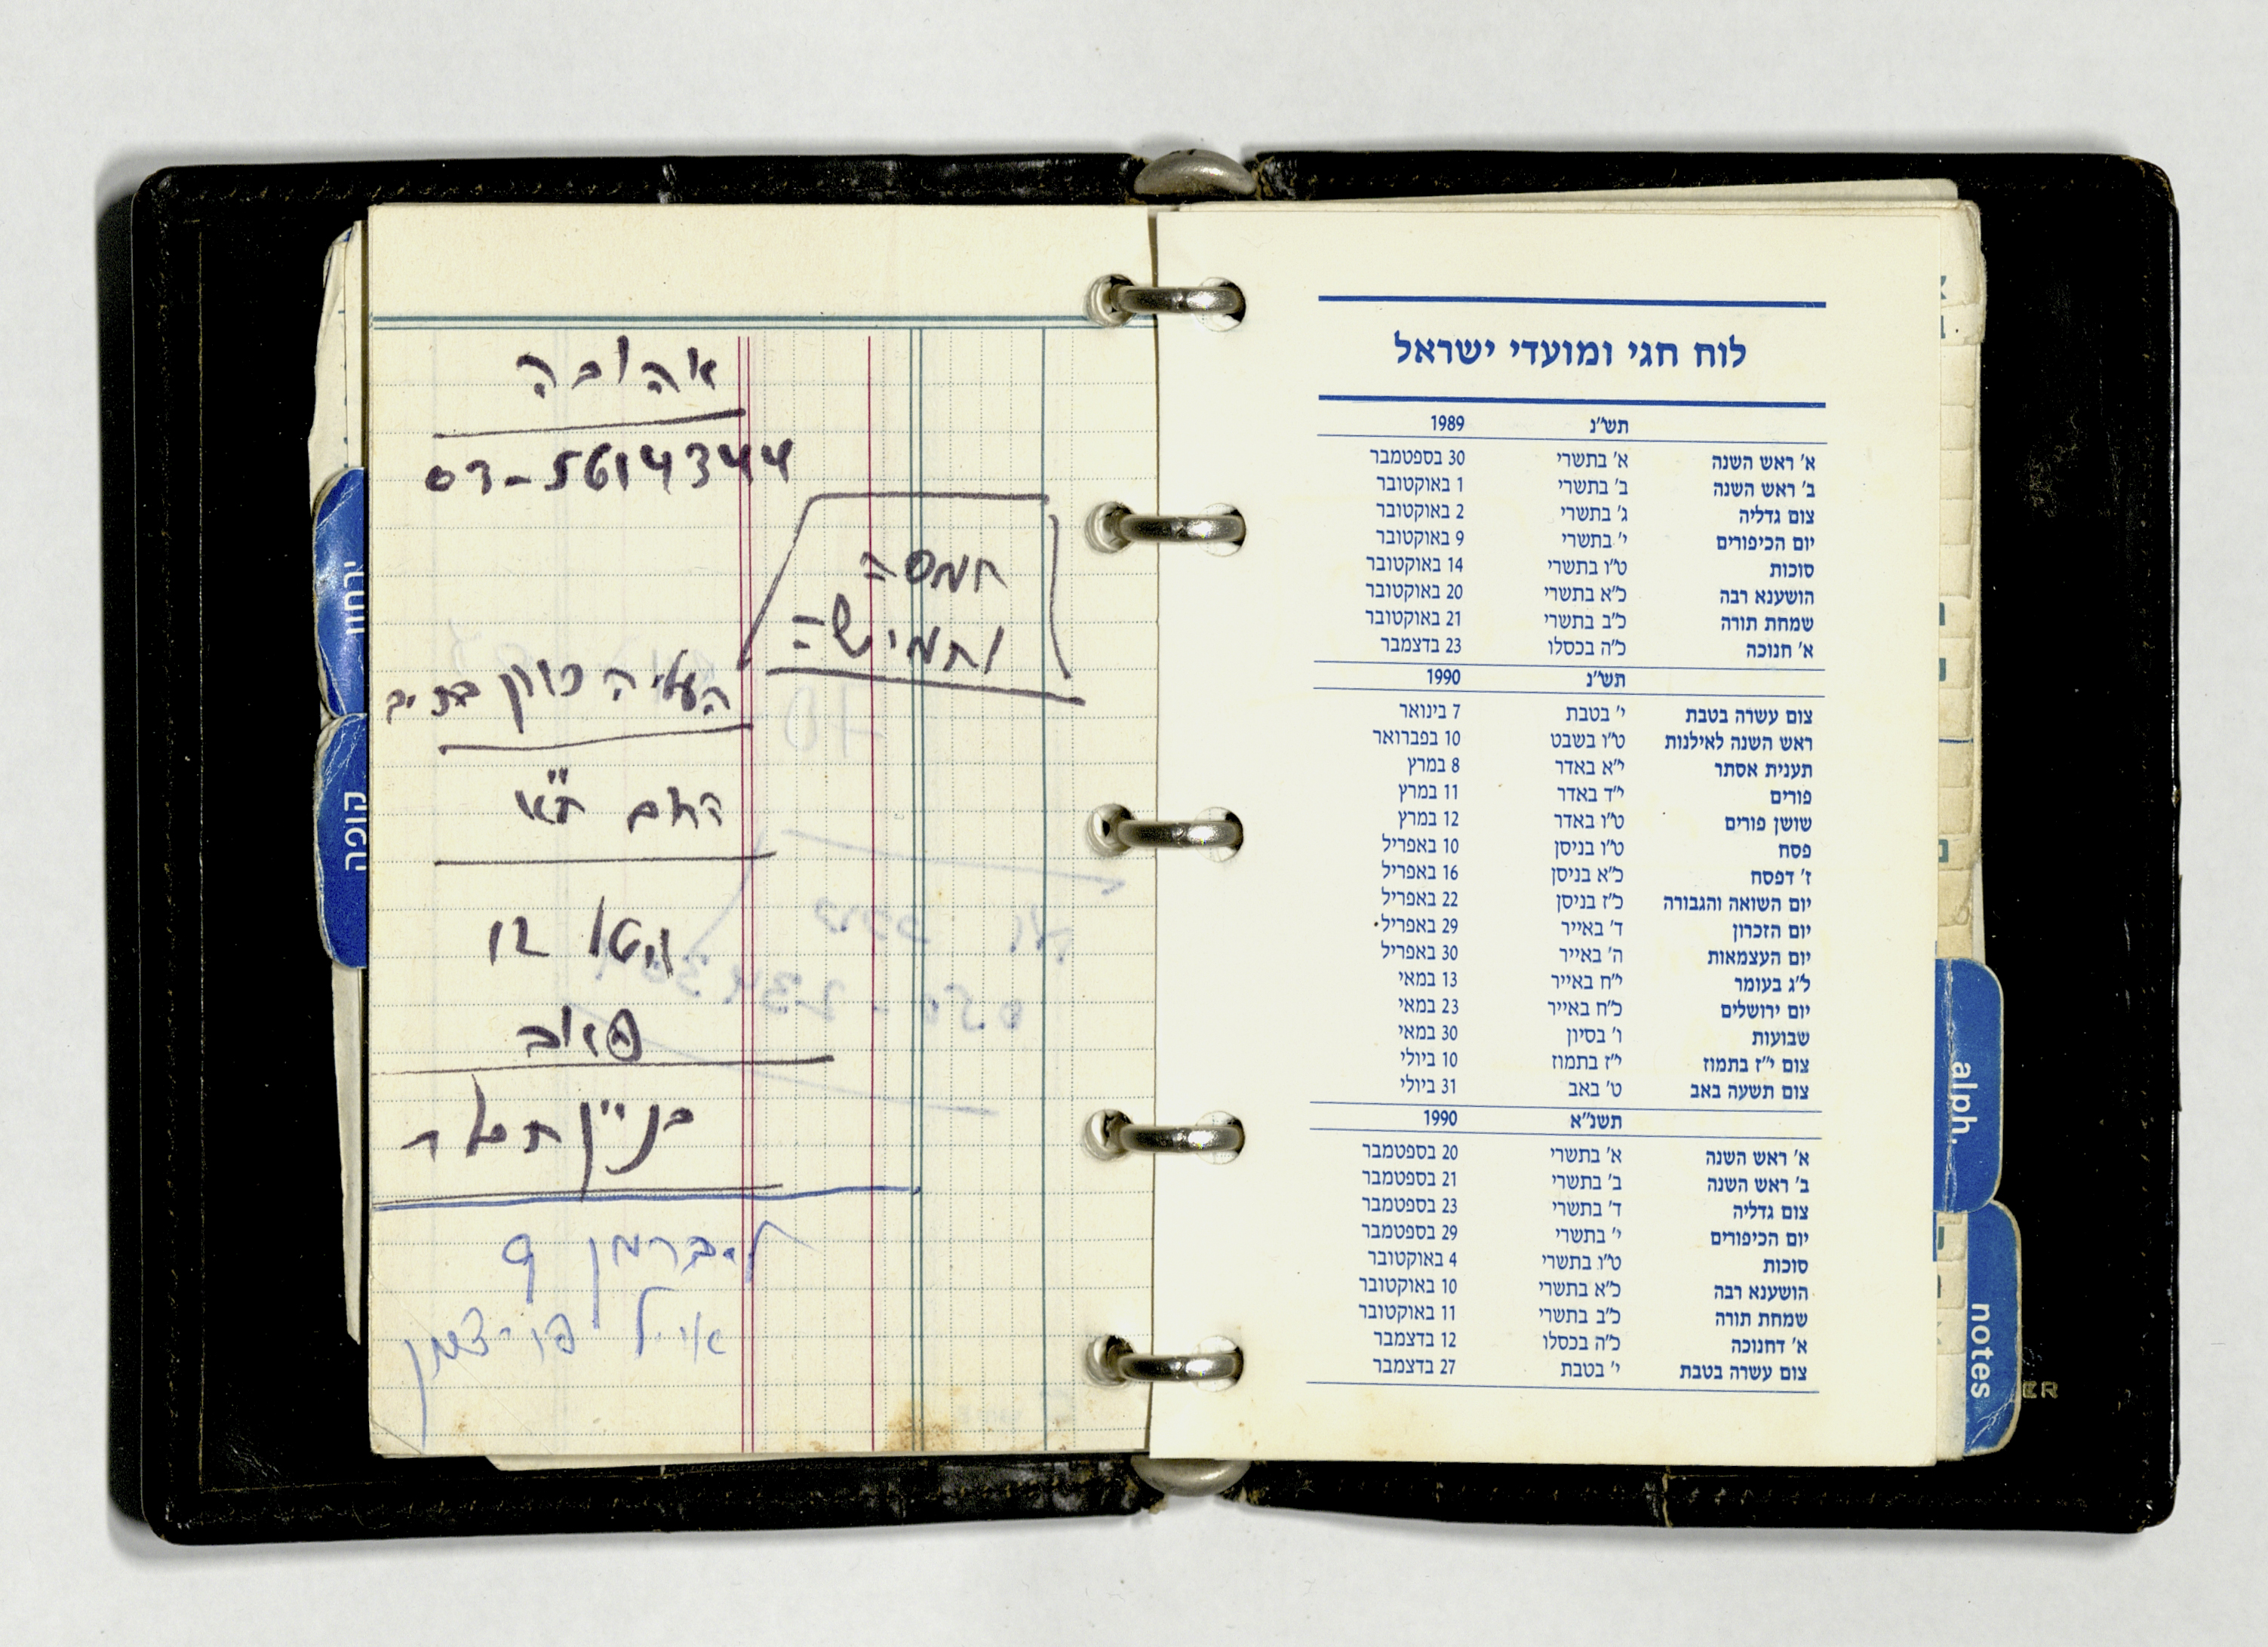 אהובה
03-5614344
חמסה
וחמישה
העליה
בניין
ליברמן 9
אייל
ירחון
קופה
לוח חגי ומועדי ישראל
תש"נ 1989
א' ראש השנה א' בתשרי 30 בספטמבר
ב' ראש השנה ב' בתשרי 1 באוקטובר
צום גדליה ג' בתשרי 2 באוקטובר
יום הכיפורים י' בתשרי 9 באוקטובר
סוכות ט"ו בתשרי 14 באוקטובר
הושענא רבה כ"א בתשרי 20 באוקטובר
שמחת תורה כ"ב בתשרי 21 באוקטובר
א' חנוכה כ"ה בכסלו 23 בדצמבר
תש"נ 1990
צום עשרה בטבת י' בטבת 7 בינואר
ראש השנה לאילנות ט"ו בשבט 10 בפברואר
תענית אסתר י"א באדר 8 במרץ
פורים י"ד באדר 11 במרץ
שושן פורים ט"ו באדר 12 במרץ
פסח ט"ו בניסן 10 באפריל
ז' דפסח כ"א בניסן 16 באפריל
יום השואה והגבורה כ"ז בניסן 22 באפריל
יום הזכרון ד' באייר 29 באפריל
יום העצמאות ה' באייר 30 באפריל
ל"ג בעומר י"ח באייר 13 במאי
יום ירושלים כ"ח באייר 23 במאי
שבועות ו' בסיון 30 במאי
צום י"ז בתמוז י"ז בתמוז 10 ביולי
צום תשעה באב ט' באב 31 ביולי
תשנ"א 1990
א' ראש השנה א' בתשרי 20 בספטמבר
ב' ראש השנה ב' בתשרי 21 בספטמבר
צום גדליה ד' בתשרי 23 בספטמבר
יום הכיפורים י' בתשרי 29 בספטמבר
סוכות ט"ו בתשרי 4 באוקטובר
הושענא רבה כ"א בתשרי 10 באוקטובר
שמחת תורה כ"ב בתשרי 11 באוקטובר
א' דחנוכה כ"ה בכסלו 12 בדצמבר
צום עשרה בטבת י' בטבת 27 בדצמבר
alph.
notes